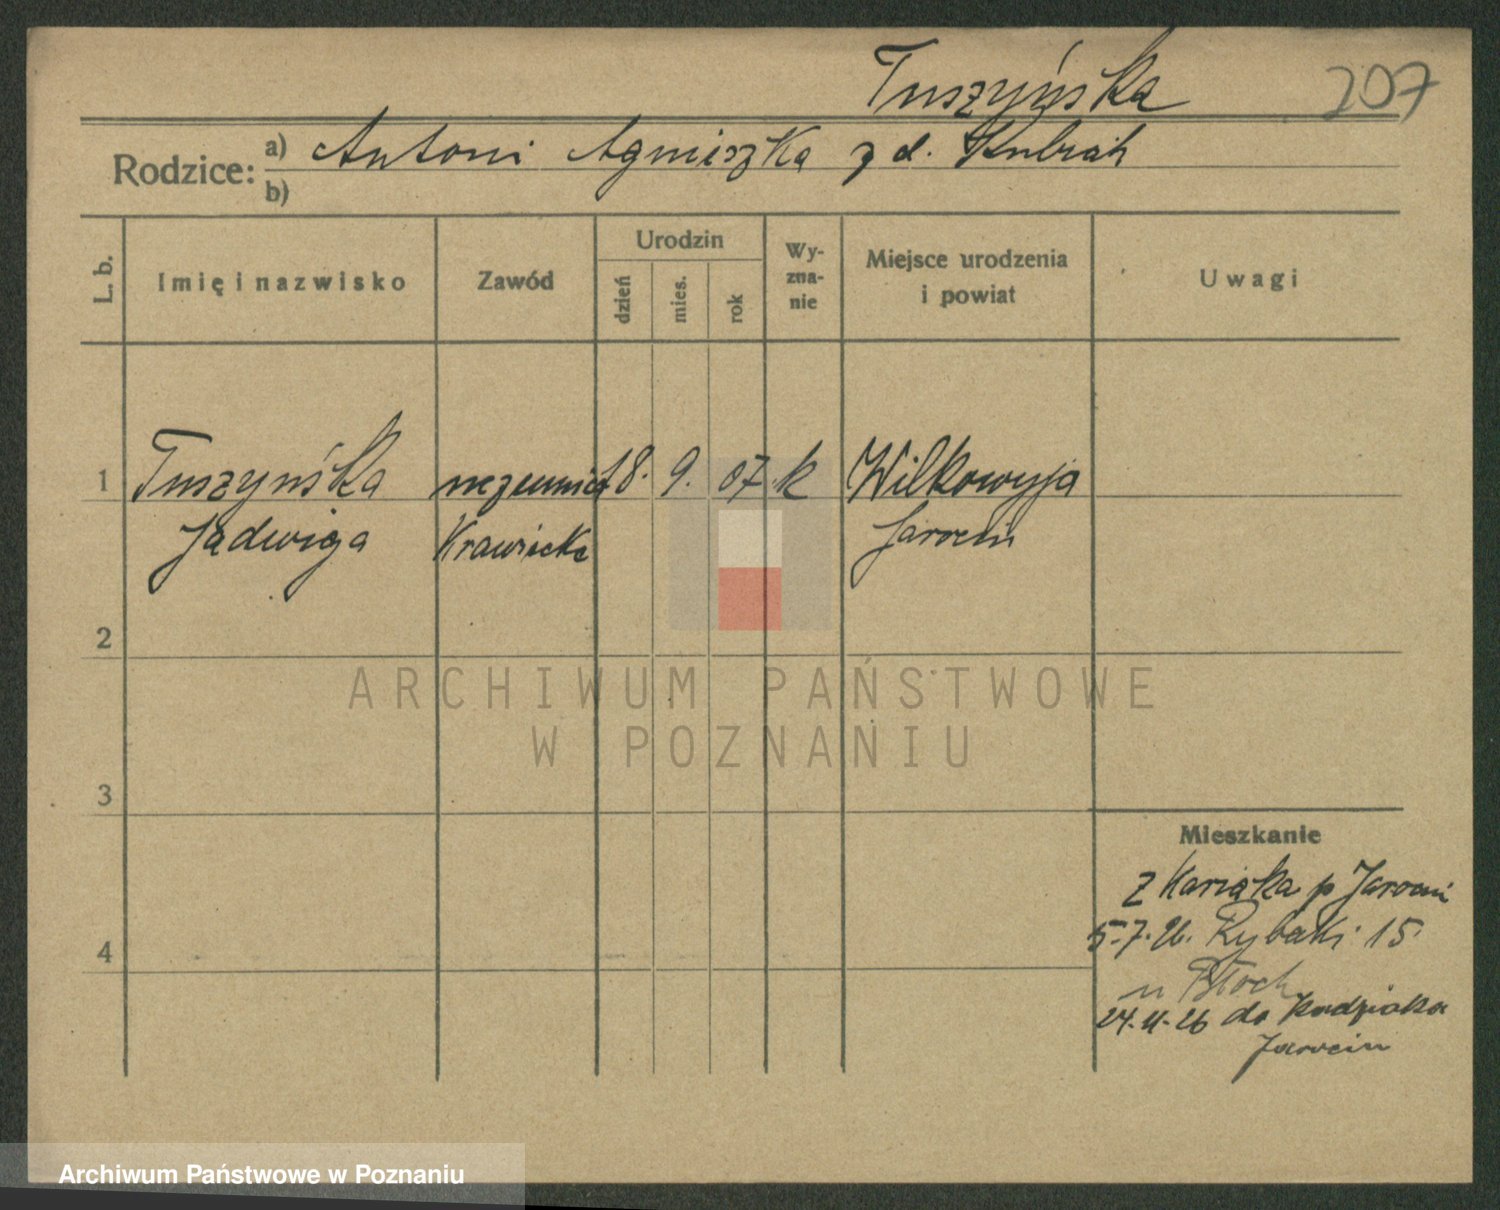 Tuszyńska 207
Rodzice: a) Antoni Agnieszka z d. Kubiak
b)
L. b. Imię i nazwisko Zawód Urodzin dzień mies. rok Wy-zna-nie Miejsce urodzenia i powiat Uwagi
1 Tuszyńska uczennica 18. 9. 07 k Wilkowyja
Jadwiga Krawiecka Jarocin
2
ARCHIWUM PAŃSTWOWE
W POZNANIU
3
Mieszkanie
z p Jarocin
5.7.26. Rybaki 15
4
u Błoch
24.11.26 do
Jarocin
Archiwum Państwowe w Poznaniu